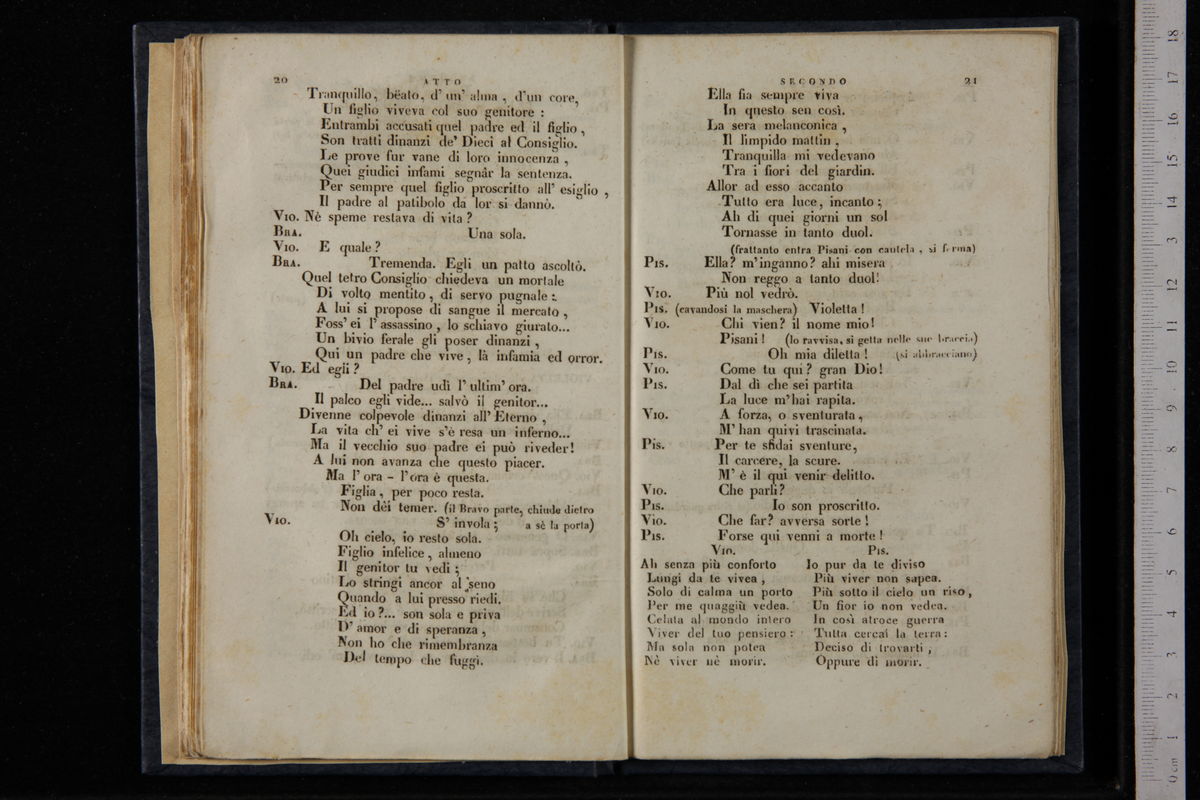 20
ATTO
Tranquillo, bëato, d' un' alma, d'un core,
Un figlio viveva col suo genitore :
Entrambi accusati quel padre ed il figlio,
Son tratti dinanzi de' Dieci al Consiglio.
Le prove fur vane di loro innocenza,
Quei giudici infami segnâr la sentenza.
Per sempre quel figlio proscritto all' esiglio,
Il padre al patibolo da lor si dannò.
VIO. Nè speme restava di vita?
BRA. Una sola.
VIO. E quale?
BRA. Tremenda. Egli un patto ascoltò.
Quel tetro Consiglio chiedeva un mortale
Di volto mentito, di servo pugnale:
A lui si propose di sangue il mercato,
Foss' ei l' assassino, lo schiavo giurato...
Un bivio ferale gli poser dinanzi,
Qui un padre che vive, là infamia ed orror.
VIO. Ed egli?
BRA. Del padre udì l' ultim' ora.
Il palco egli vide... salvò il genitor...
Divenne colpevole dinanzi all' Eterno,
La vita ch' ei vive s'è resa un inferno...
Ma il vecchio suo padre ei può riveder!
A lui non avanza che questo piacer.
Ma l' ora - l'ora è questa.
Figlia, per poco resta.
Non dèi temer. (il Bravo parte, chiude dietro
VIO. S' invola; a sè la porta)
Oh cielo, io resto sola.
Figlio infelice, almeno
Il genitor tu vedi;
Lo stringi ancor al seno
Quando a lui presso riedi.
Ed io?... son sola e priva
D' amor e di speranza,
Non ho che rimembranza
Del tempo che fuggì.
SECONDO
21
Ella fia sempre viva
In questo sen così.
La sera melanconica,
Il limpido mattin,
Tranquilla mi vedevano
Tra i fiori del giardin.
Allor ad esso accanto
Tutto era luce, incanto;
Ah di quei giorni un sol
Tornasse in tanto duol.
(frattanto entra Pisani con cautela, si ferma)
PIS. Ella? m'inganno? ahi misera
Non reggo a tanto duol!
VIO. Più nol vedrò.
PIS. (cavandosi la maschera) Violetta!
VIO. Chi vien? il nome mio!
Pisani! (lo ravvisa, si getta nelle sue braccia)
PIS. Oh mia diletta! (si abbracciano)
VIO. Come tu qui? gran Dio!
PIS. Dal dì che sei partita
La luce m'hai rapita.
VIO. A forza, o sventurata,
M' han quivi trascinata.
PIS. Per te sfidai sventure,
Il carcere, la scure.
M' è il qui venir delitto.
VIO. Che parli?
PIS. Io son proscritto.
VIO. Che far? avversa sorte!
PIS. Forse qui venni a morte!
VIO.
Ah senza più conforto
Lungi da te vivea,
Solo di calma un porto
Per me quaggiù vedea.
Celata al mondo intero
Viver del tuo pensiero:
Ma sola non potea
Nè viver nè morir.
PIS.
Io pur da te diviso
Più viver non sapea.
Più sotto il cielo un riso,
Un fior io non vedea.
In così atroce guerra
Tutta cercai la terra:
Deciso di trovarti,
Oppure di morir.